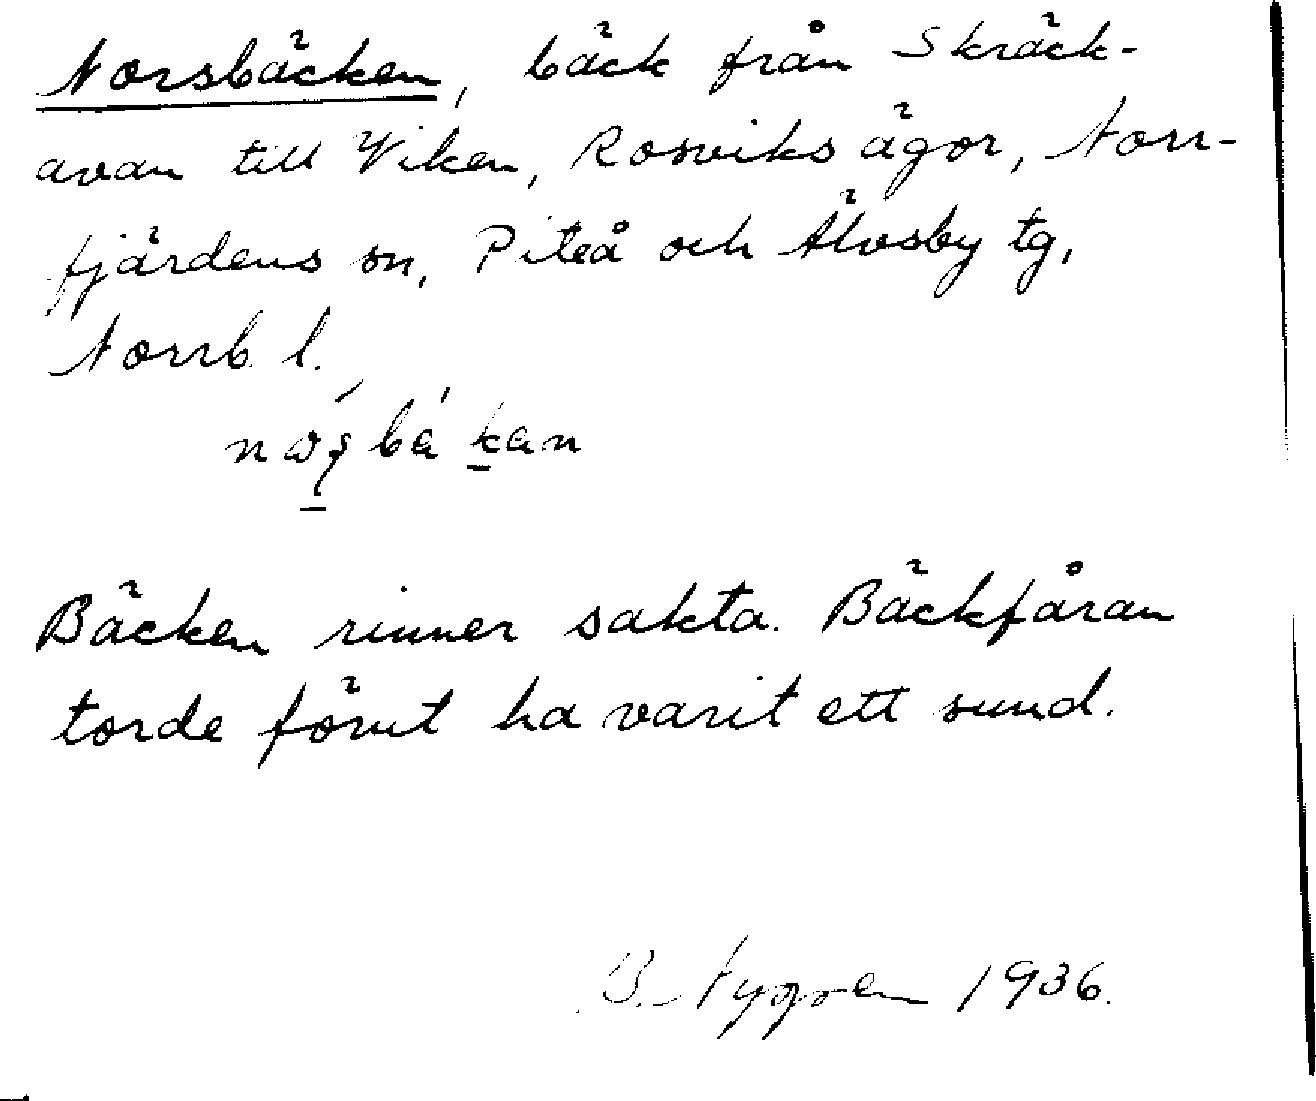 Norsbäcken, bäck från Skräck-
avan till Viken, Rosviks ägor, Norr-
fjärdens sn, Piteå och Älvsby tg,
Norrb. l.
Bäcken rinner sakta. Bäckfåran
torde förut ha varit ett sund.
B. Nygren 1936.